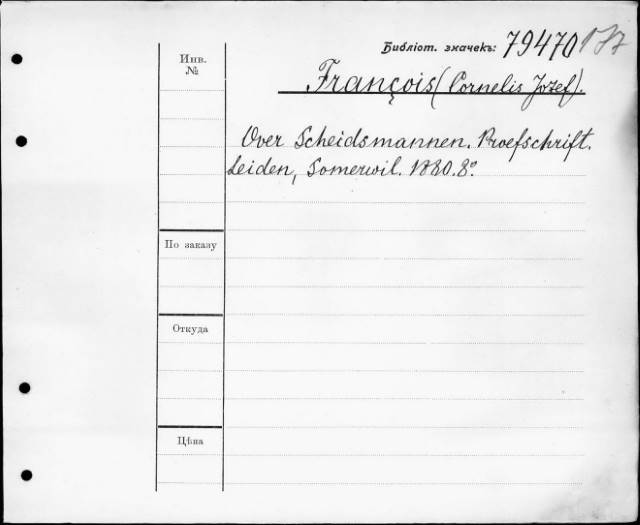 Библіот. значекъ: 79470
Инв.
№
François (Cornelis Jozef).
Over Scheidsmannen. Proefschrift.
Leiden, Somerwil. 1880. 8º.
По заказу
Откуда
Цѣна